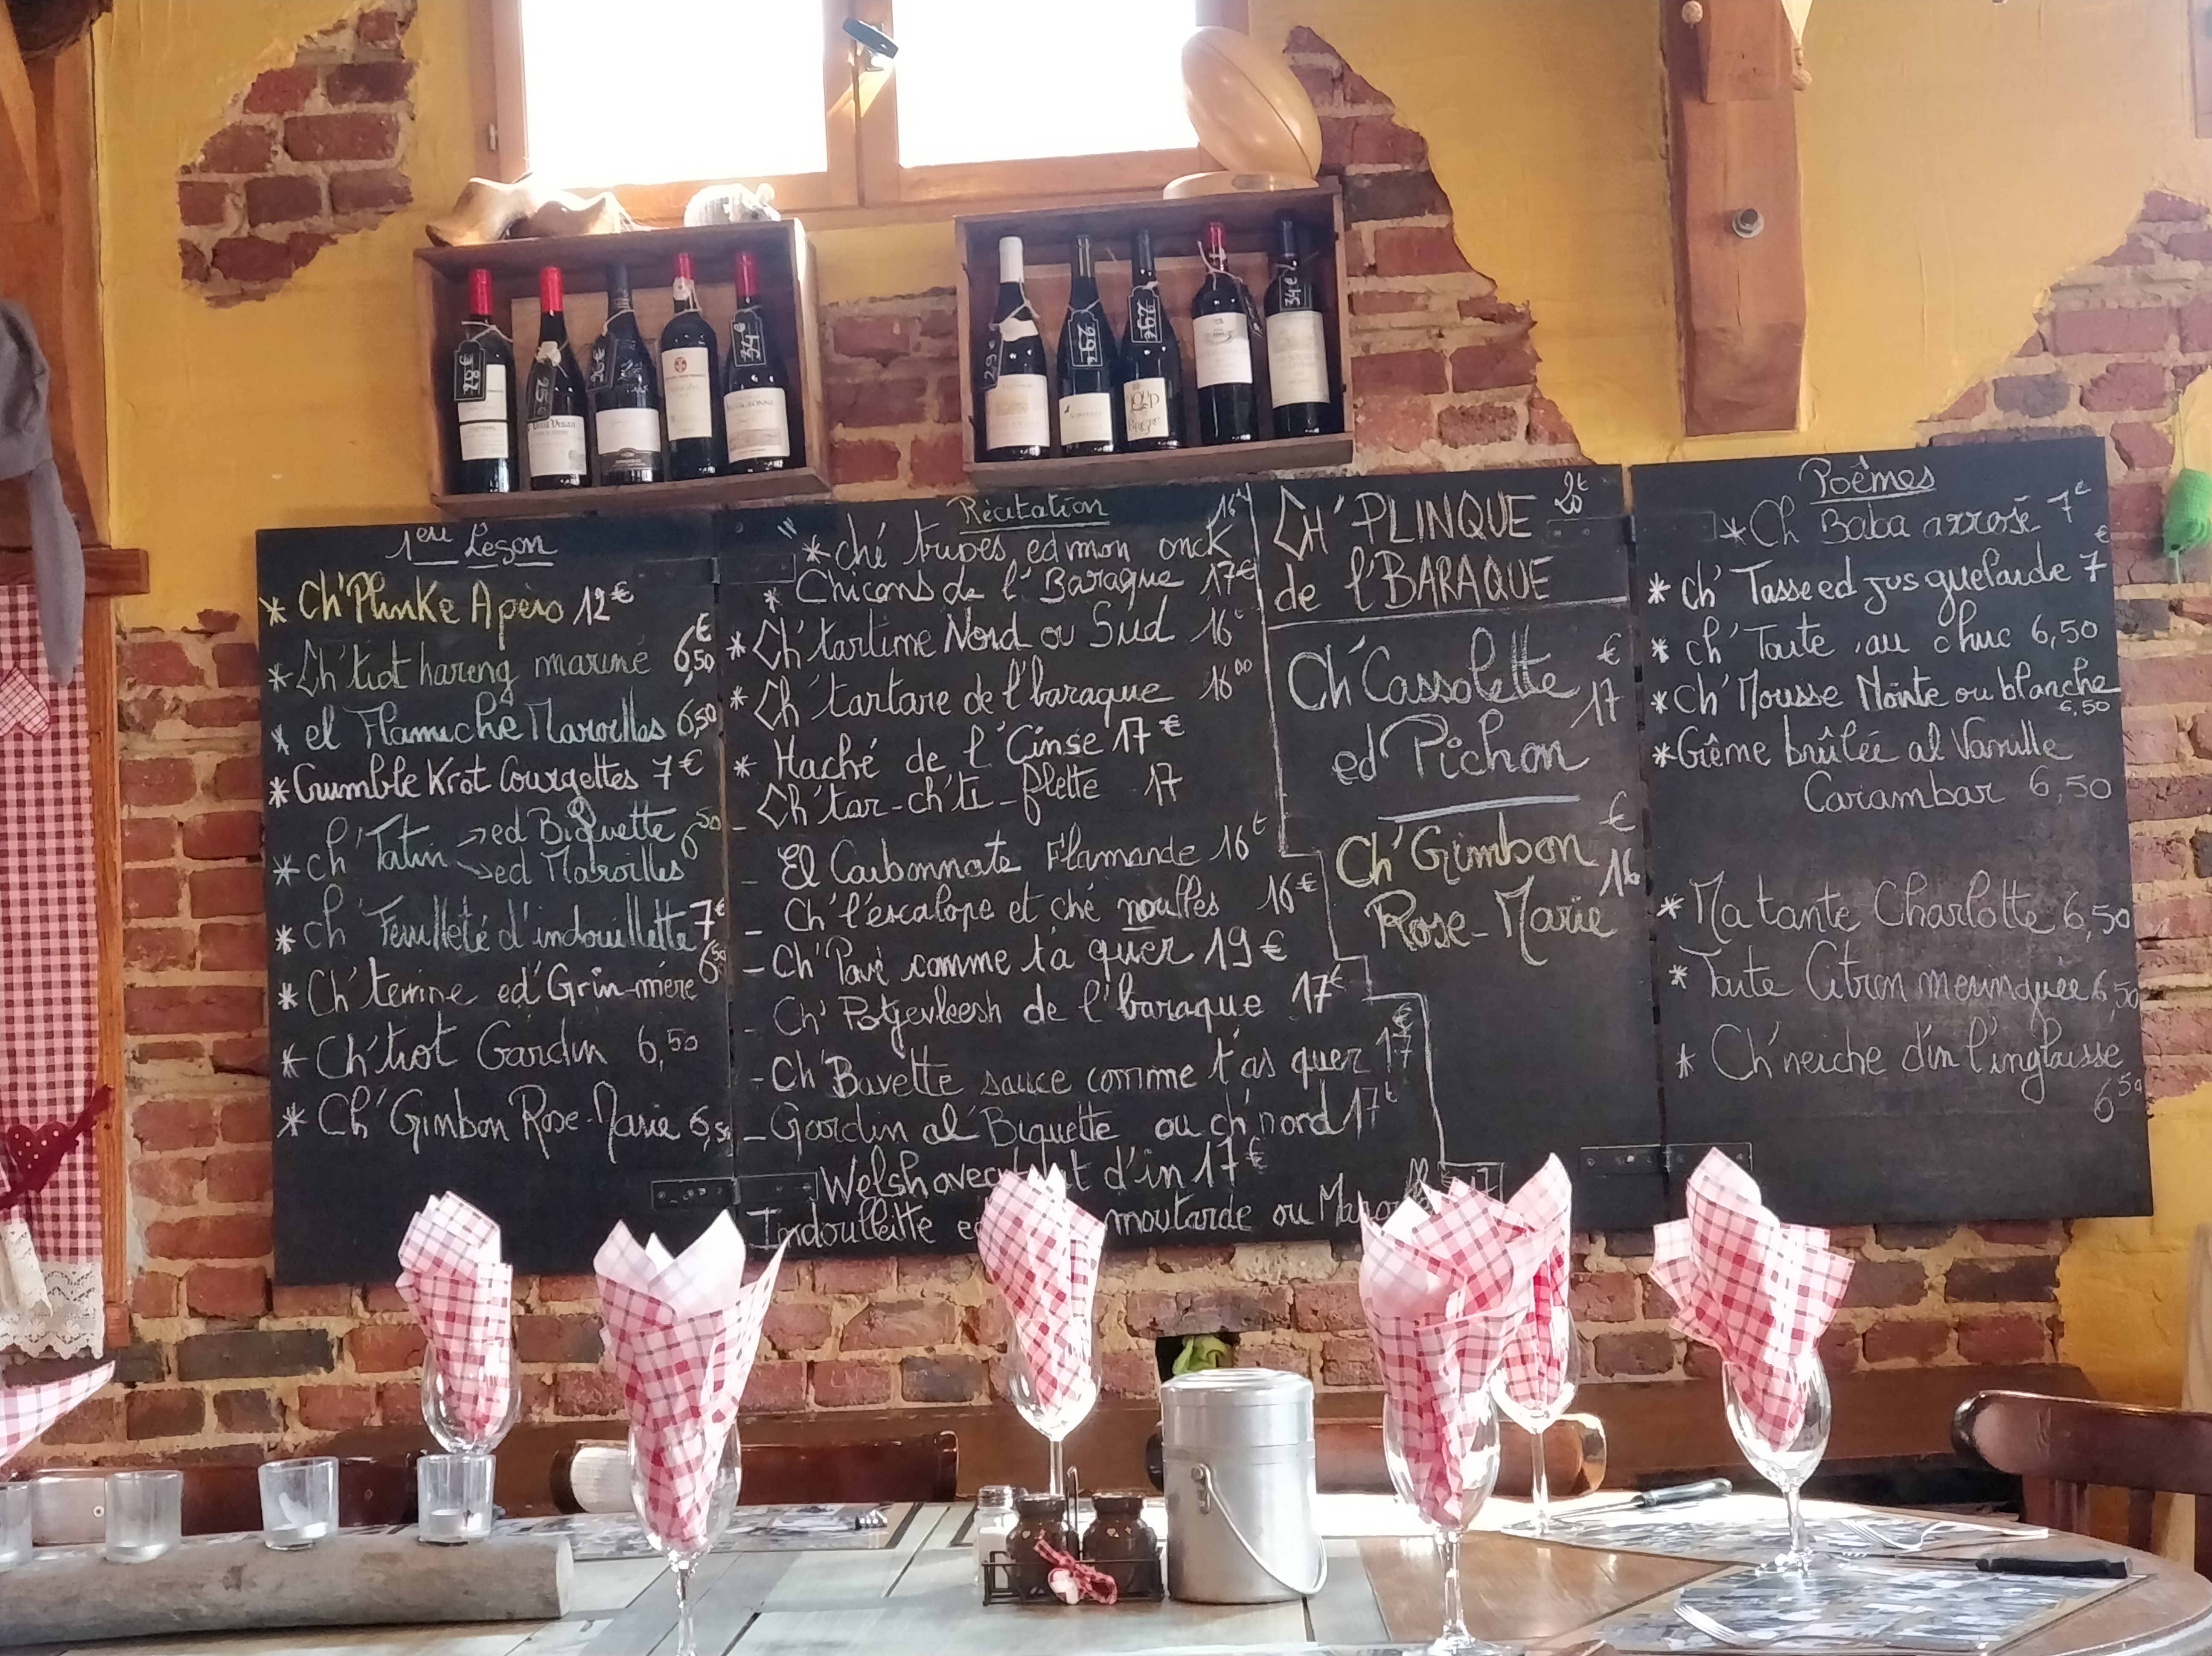 1ère Leçon
* Ch'Plinke Apéro 12€
* Ch'tiot hareng mariné 6,50€
* el Flamiche Maroilles 6,50
* Crumble Krot Courgettes 7€
* ch' Tatin → ed Biquette 6,50
→ ed Maroilles
* ch' Feuilleté d'indouillette 7€
* Ch' terrine ed' Grin-mère 6,50
* Ch'tiot Gardin 6,50
* Ch'Gimbon Rose-Marie 6,50
Récitation
* ché tripes ed mon onck 16€
* Chicons de l'Baraque 17€
* Ch'tartine Nord ou Sud 16€
* Ch'tartare de l'baraque 16,00
* Haché de l'Cinse 17€
- Ch'tar-ch'ti-flette 17
- El Carbonnate Flamande 16€
- Ch'l'escalope et ché noulles 16€
- Ch'Pavé comme t'a quer 19€
- Ch' Potjevleesh de l'baraque 17€
- Ch'Bavette sauce comme t'as quer 17€
- Gardin al'Biquette ou ch'nord 17€
Welsh avec d'in 17€
Indoulleitte moutarde ou 17
Ch'PLINQUE 20€
de l'BARAQUE
Ch'Cassolette
ed Pichon 17€
Ch'Gimbon
Rose-Marie 16€
Poêmes
* Ch Baba arrosé 7€
* Ch' Tasse ed jus guelarde 7€
* ch' Tarte au chuc 6,50
* Ch' Mousse Nointe ou blanche 6,50
* Crême brûlée al Vanille
Carambar 6,50
* Ma tante Charlotte 6,50
* Tarte Citron meringuée 6,50
* Ch'neiche d'in l'inglaisse
6,50
28€
34€
29€
26€
26€
34€